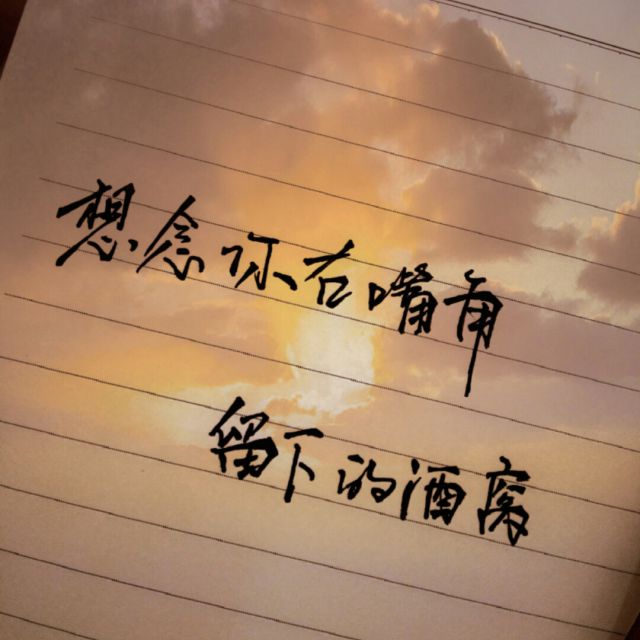 想念你右嘴角
留下的酒窝